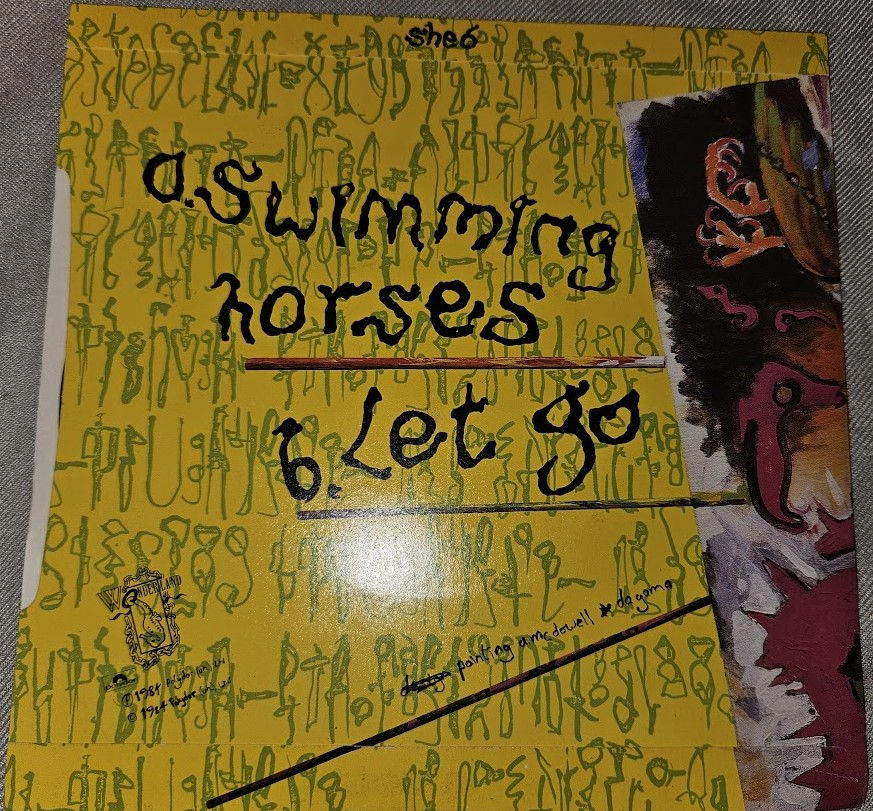 she6
a. Swimming
horses
b. Let go
painting a mcdowell * da gama
WONDERLAND
℗ 1984 Polydor
© 1984 Polydor